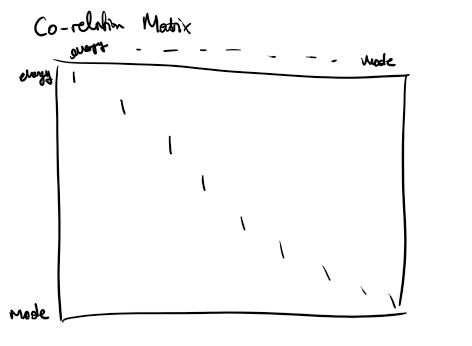 Co-relation Matrix
energy - - - - - - - mode
energy 1
1
1
1
1
1
1
1
1
Mode